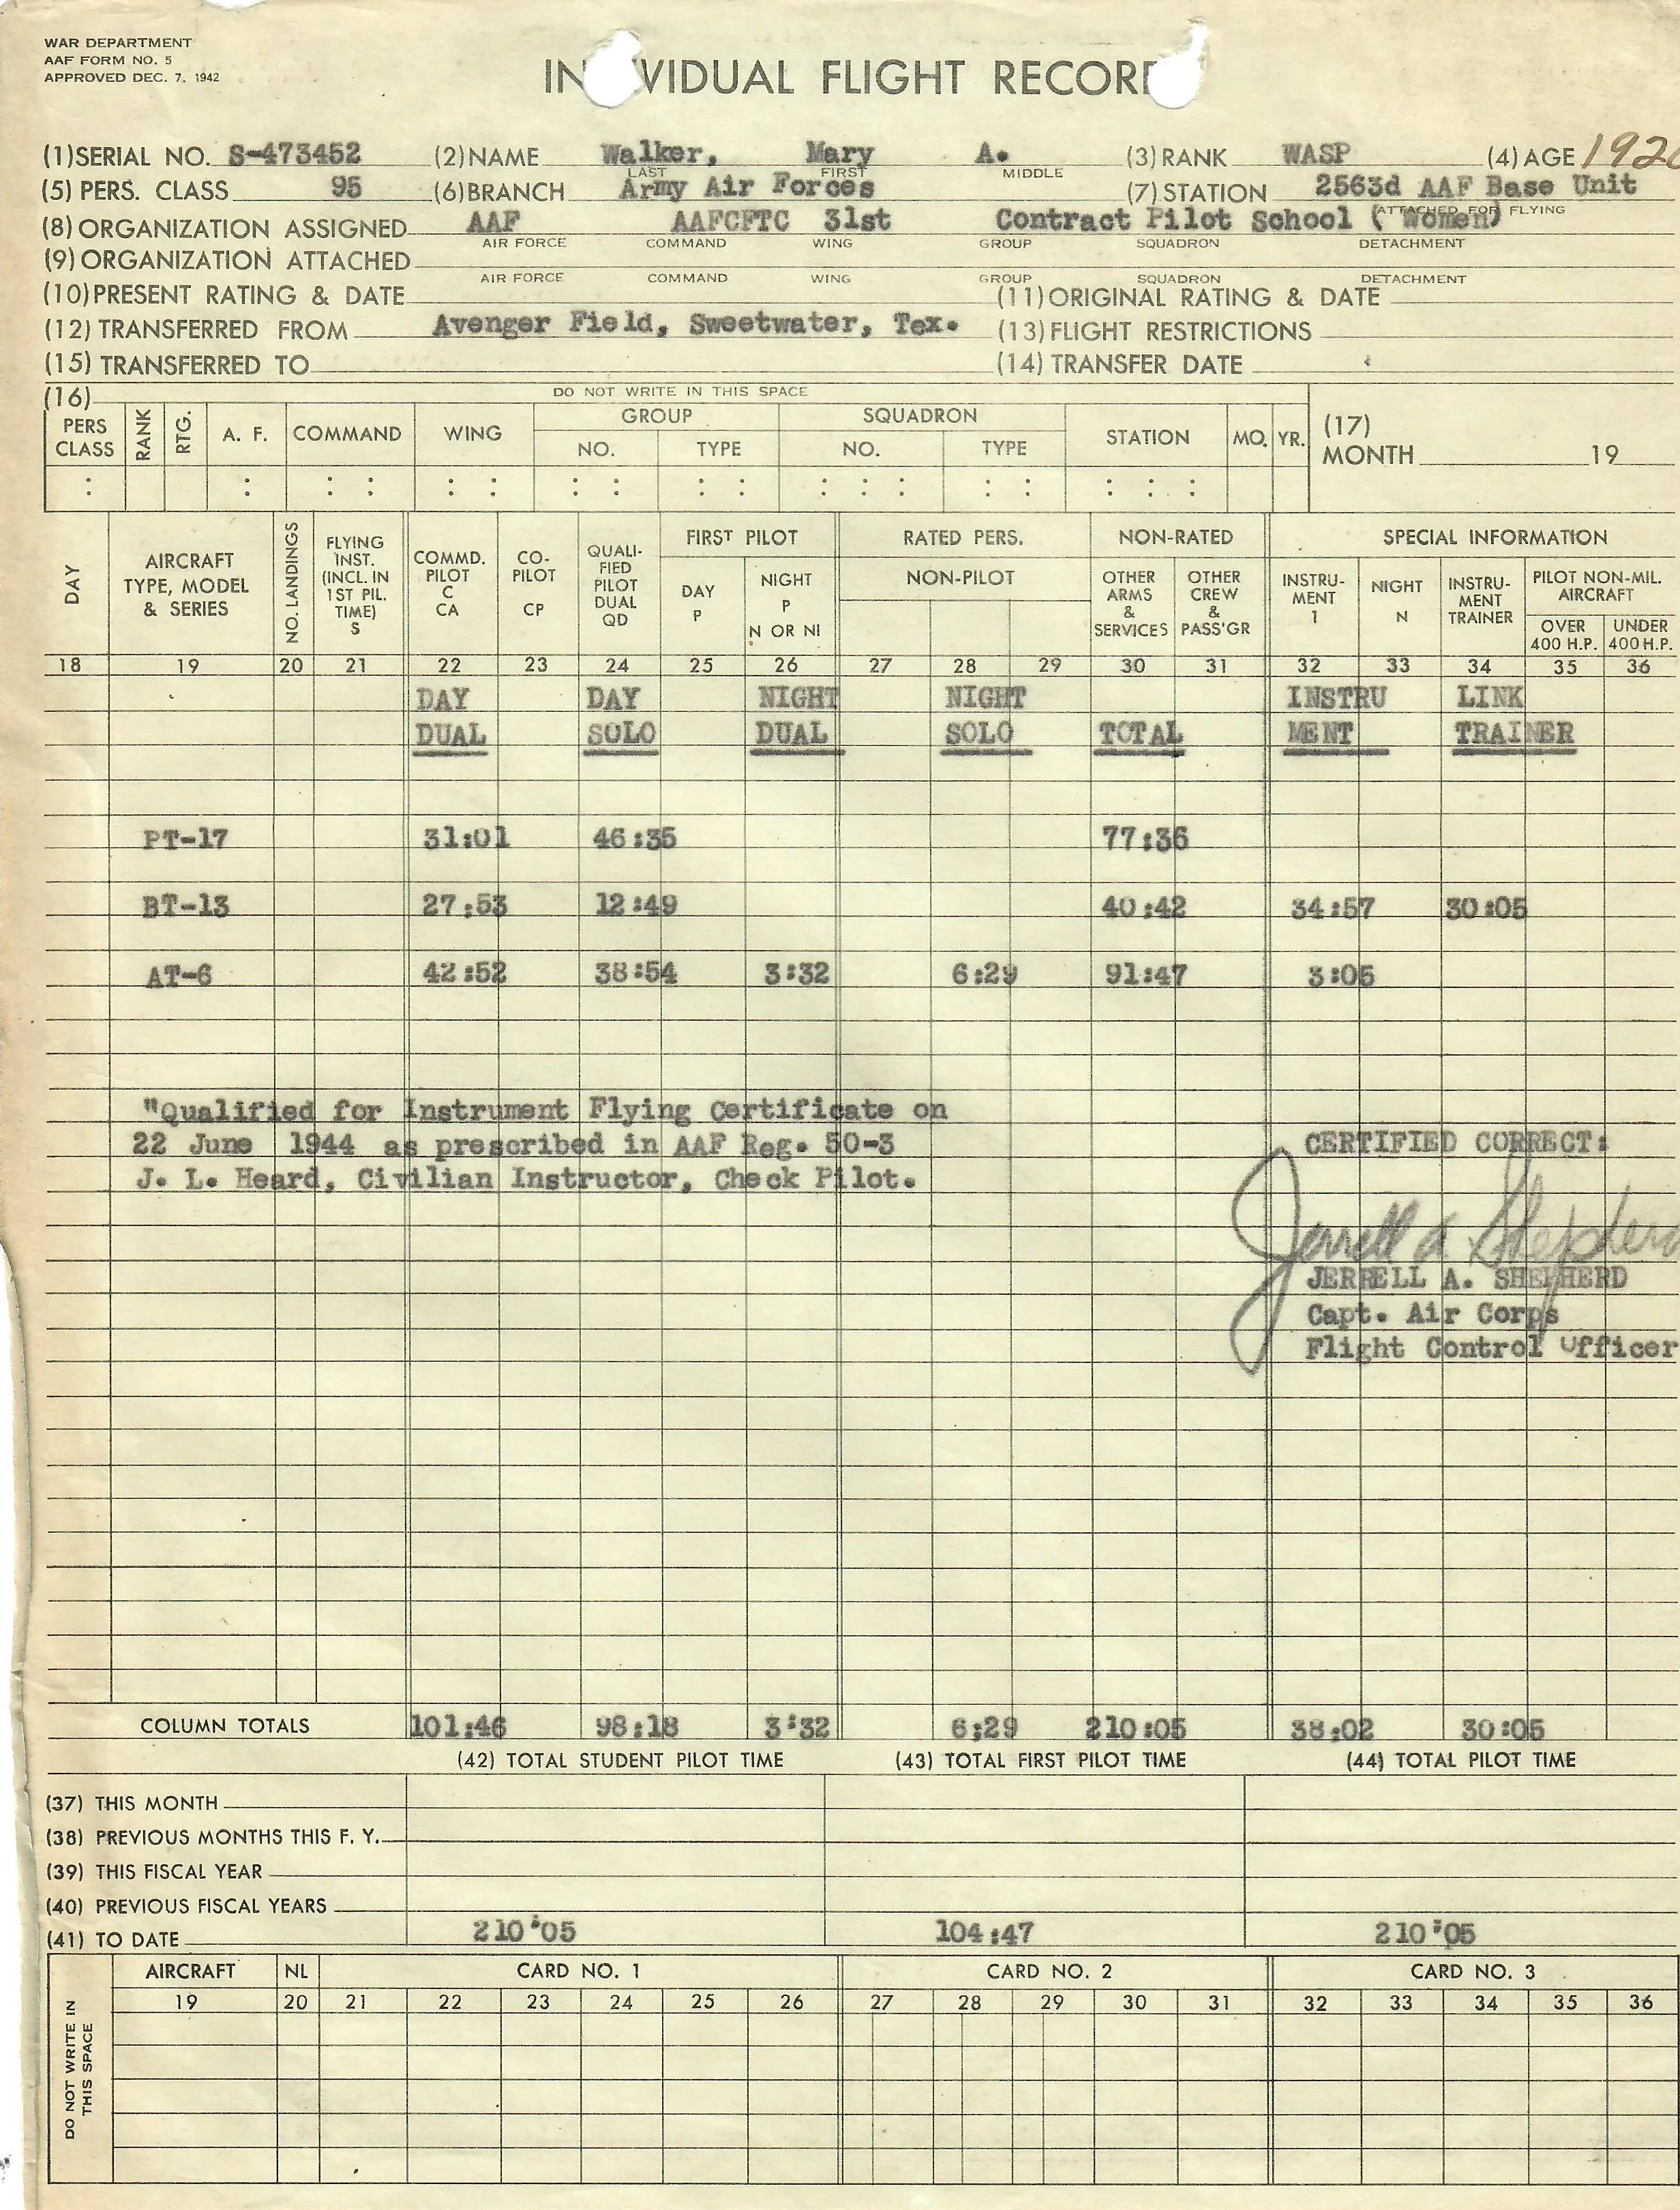 WAR DEPARTMENT
AAF FORM NO. 5
APPROVED DEC. 7, 1942
IN VIDUAL FLIGHT RECOR
(1) SERIAL NO. S-473452 (2) NAME Walker, Mary A. (3) RANK WASP (4) AGE 192
LAST FIRST MIDDLE
(5) PERS. CLASS 95 (6) BRANCH Army Air Forces (7) STATION 2563d AAF Base Unit
ATTACHED FOR FLYING
(8) ORGANIZATION ASSIGNED AAF AAFCFTC 31st Contract Pilot School (Women)
AIR FORCE COMMAND WING GROUP SQUADRON DETACHMENT
(9) ORGANIZATION ATTACHED
AIR FORCE COMMAND WING GROUP SQUADRON DETACHMENT
(10) PRESENT RATING & DATE (11) ORIGINAL RATING & DATE
(12) TRANSFERRED FROM Avenger Field, Sweetwater, Tex. (13) FLIGHT RESTRICTIONS
(15) TRANSFERRED TO (14) TRANSFER DATE
(16) DO NOT WRITE IN THIS SPACE
PERS CLASS RANK RTG. A. F. COMMAND WING GROUP NO. TYPE SQUADRON NO. TYPE STATION MO. YR. (17) MONTH 19
DAY AIRCRAFT TYPE, MODEL & SERIES NO. LANDINGS FLYING INST. (INCL. IN 1ST PIL. TIME) S COMMD. PILOT C CA CO-PILOT CP QUALI-FIED PILOT DUAL QD FIRST PILOT DAY P NIGHT P N OR NI RATED PERS. NON-PILOT NON-RATED OTHER ARMS & SERVICES OTHER CREW & PASS'GR SPECIAL INFORMATION INSTRU-MENT I NIGHT N INSTRU-MENT TRAINER PILOT NON-MIL. AIRCRAFT OVER 400 H.P. UNDER 400 H.P.
18 19 20 21 22 23 24 25 26 27 28 29 30 31 32 33 34 35 36
DAY DAY NIGHT NIGHT INSTRU LINK
DUAL SOLO DUAL SOLO TOTAL MENT TRAINER
PT-17 31:01 46:35 77:36
BT-13 27:53 12:49 40:42 34:57 30:05
AT-6 42:52 38:54 3:32 6:29 91:47 3:05
"Qualified for Instrument Flying Certificate on
22 June 1944 as prescribed in AAF Reg. 50-3
J. L. Heard, Civilian Instructor, Check Pilot.
CERTIFIED CORRECT:
Jerrell A. Shepherd
JERRELL A. SHEPHERD
Capt. Air Corps
Flight Control Officer
COLUMN TOTALS 101:46 98:18 3:32 6:29 210:05 38:02 30:05
(42) TOTAL STUDENT PILOT TIME (43) TOTAL FIRST PILOT TIME (44) TOTAL PILOT TIME
(37) THIS MONTH
(38) PREVIOUS MONTHS THIS F. Y.
(39) THIS FISCAL YEAR
(40) PREVIOUS FISCAL YEARS
(41) TO DATE 210:05 104:47 210:05
DO NOT WRITE IN THIS SPACE
AIRCRAFT NL CARD NO. 1 CARD NO. 2 CARD NO. 3
19 20 21 22 23 24 25 26 27 28 29 30 31 32 33 34 35 36